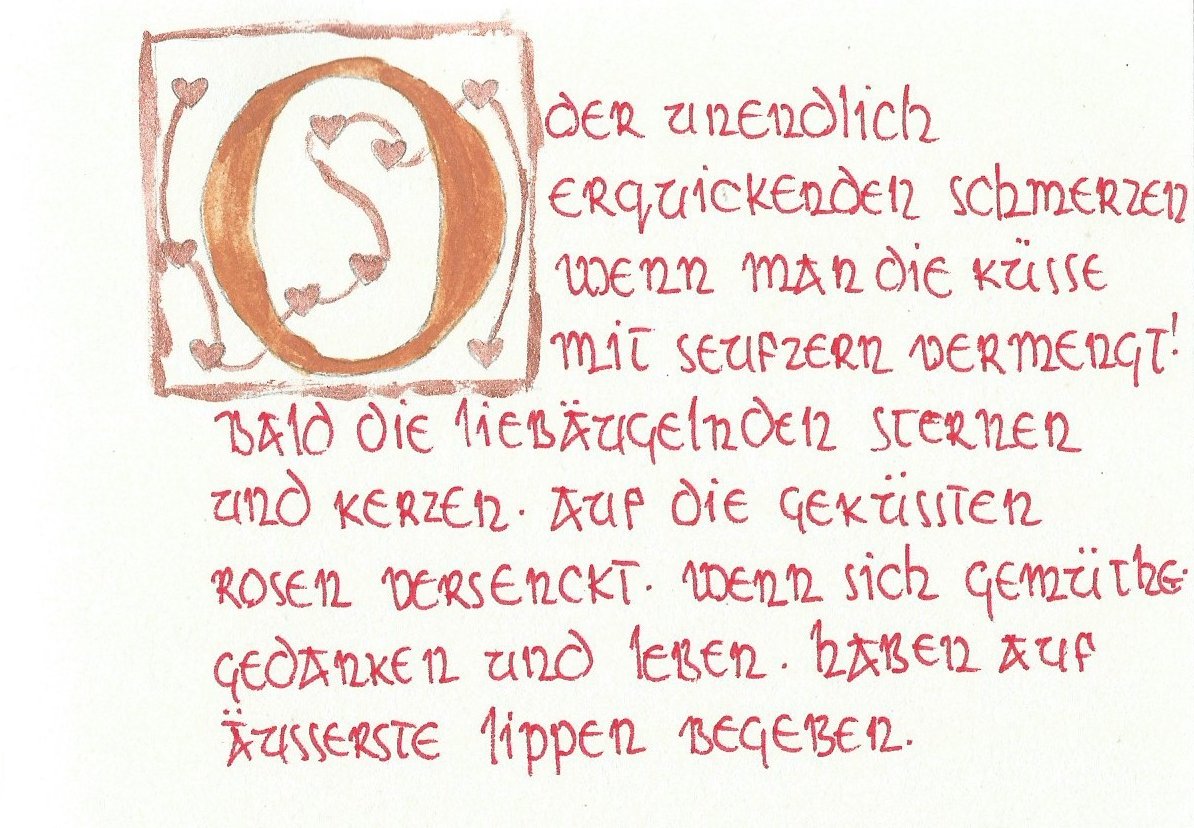 O der unendlich
erquickenden schmerzen
wenn man die küsse
mit seufzern vermengt!
Bald die liebäugelnden sternen
und kerzen. Auf die geküssten
rosen versenckt. Wenn sich gemüthe.
gedanken und leben. haben auf
äusserste lippen begeben.